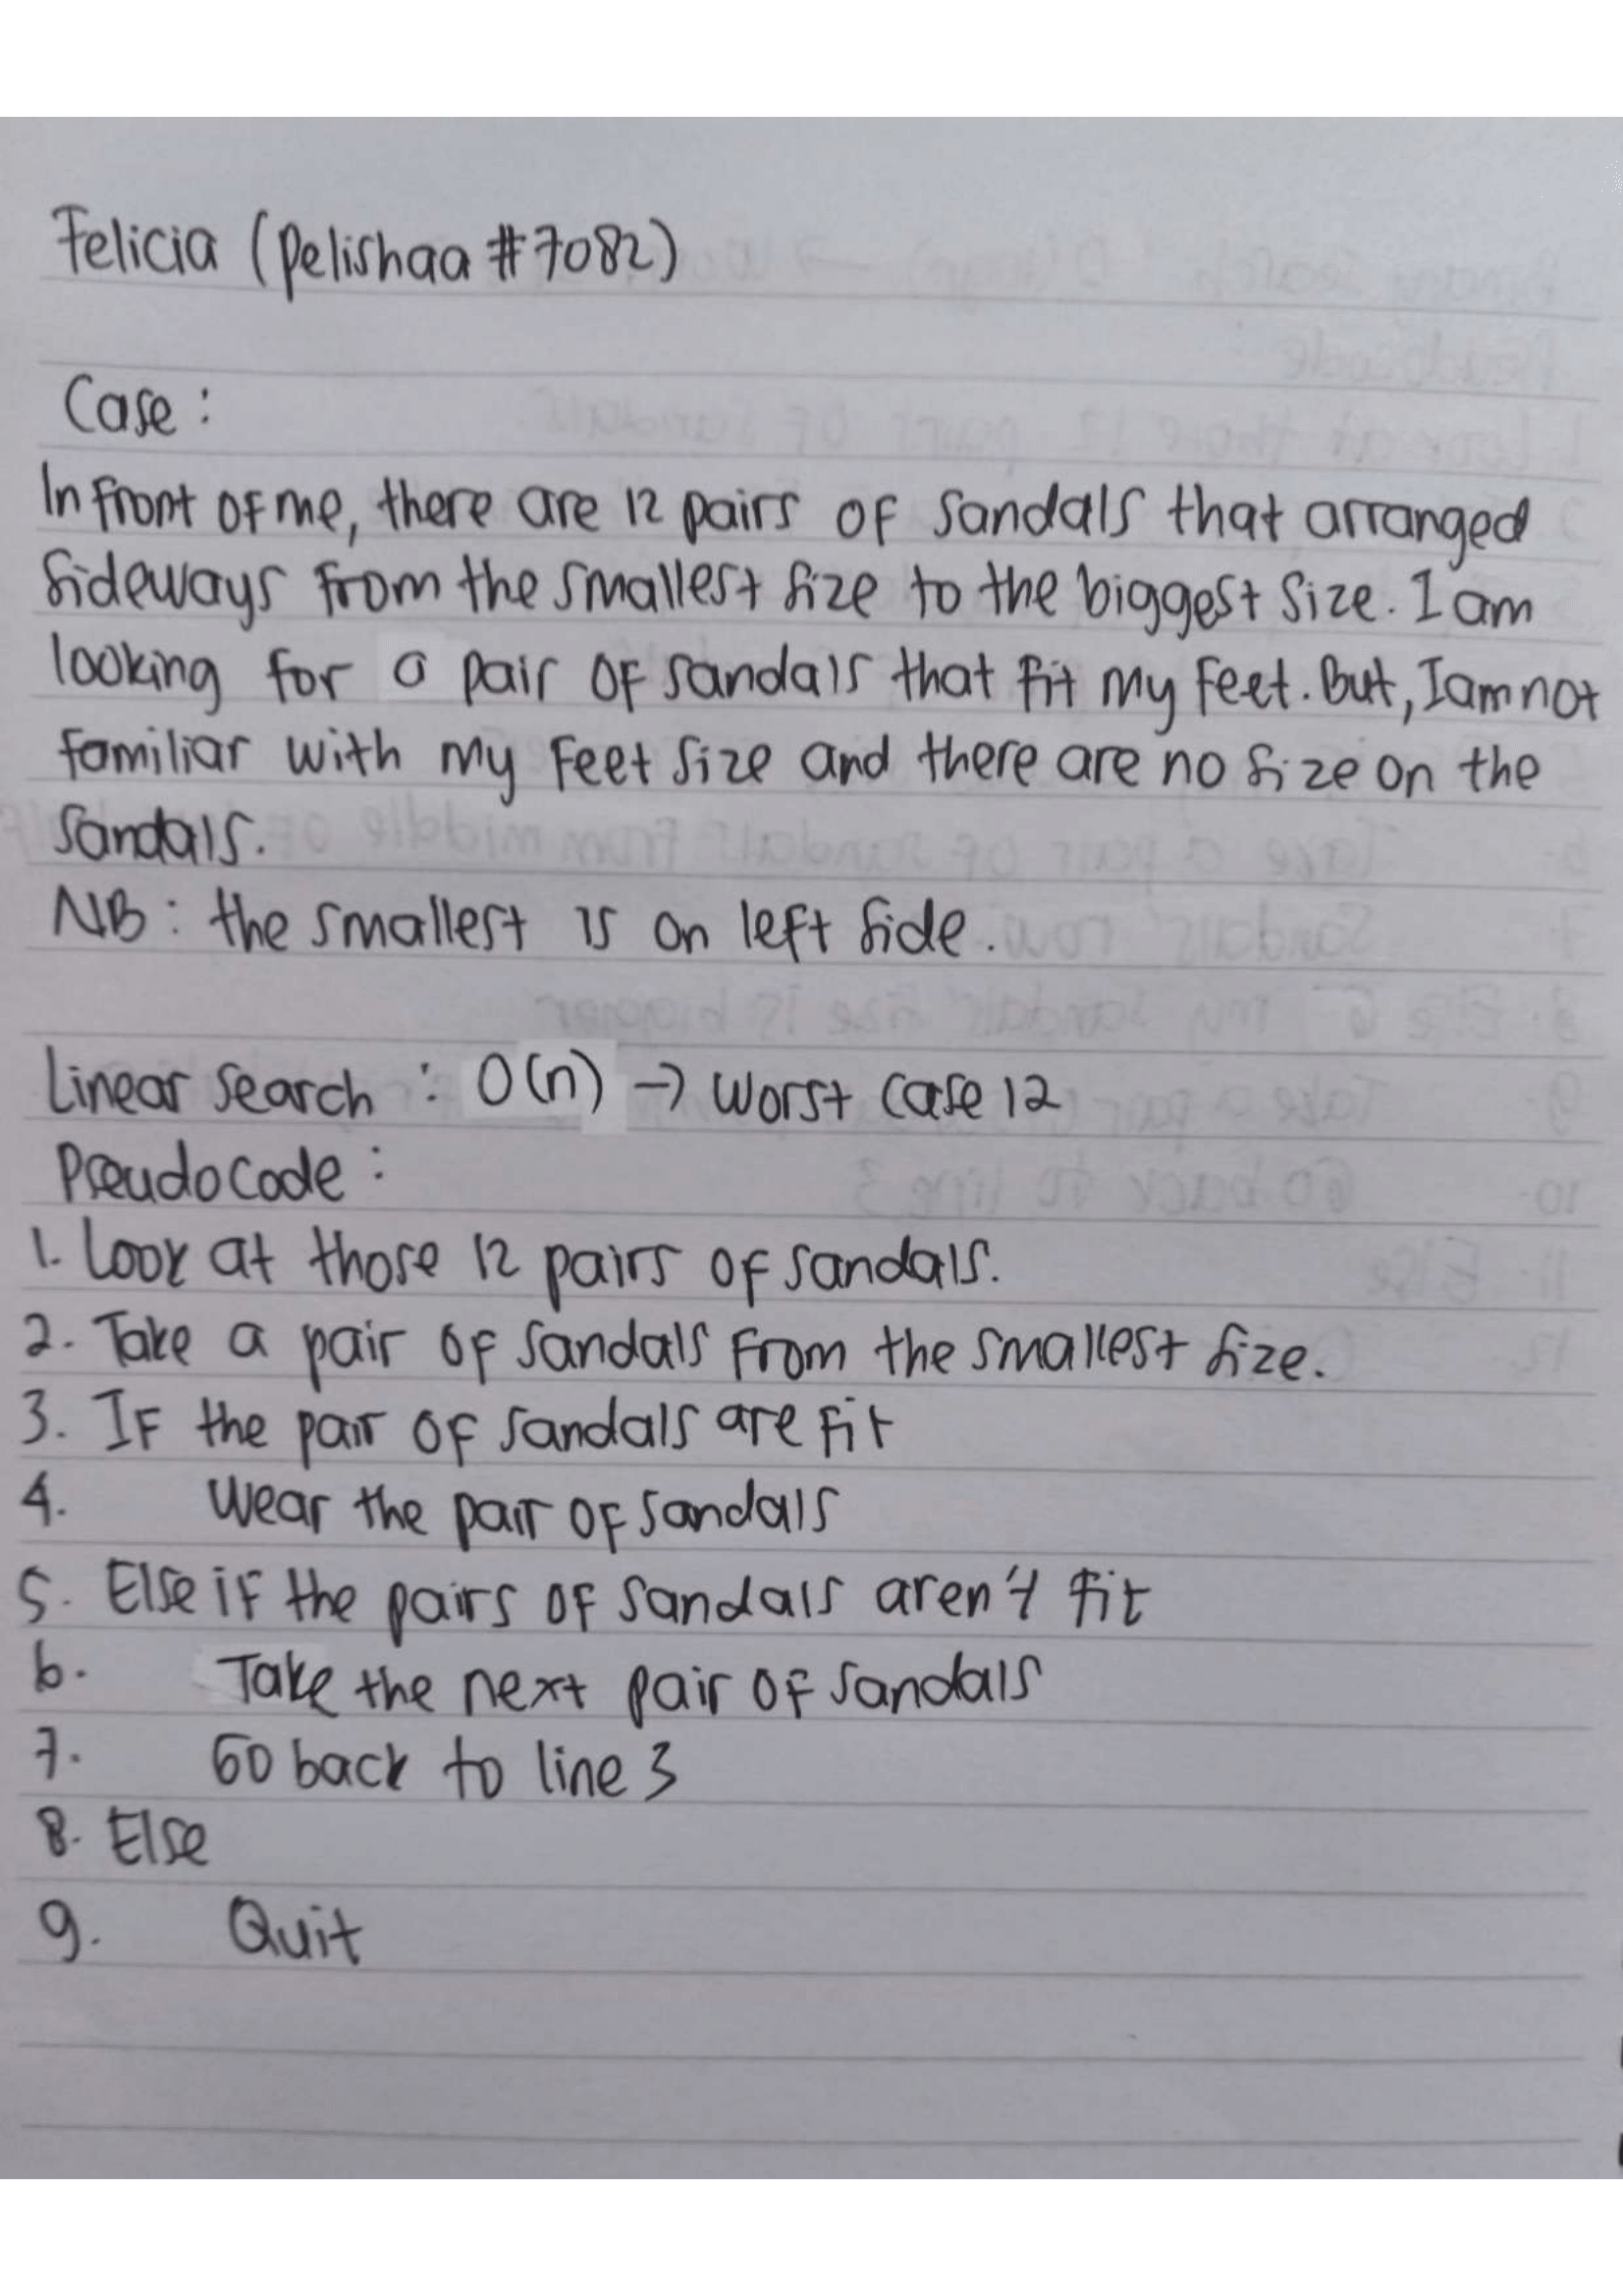 Felicia (Pelishaa #7082)
Case :
In front of me, there are 12 pairs of sandals that arranged
sideways from the smallest size to the biggest size. I am
looking for a pair of sandals that fit my feet. But, I am not
familiar with my feet size and there are no size on the
sandals.
NB : the smallest is on left side.
Linear search : O(n) → worst case 12
Pseudocode :
1. Look at those 12 pairs of sandals.
2. Take a pair of sandals from the smallest size.
3. If the pair of sandals are fit
4. Wear the pair of sandals
5. Else if the pairs of sandals aren't fit
6. Take the next pair of sandals
7. Go back to line 3
8. Else
9. Quit